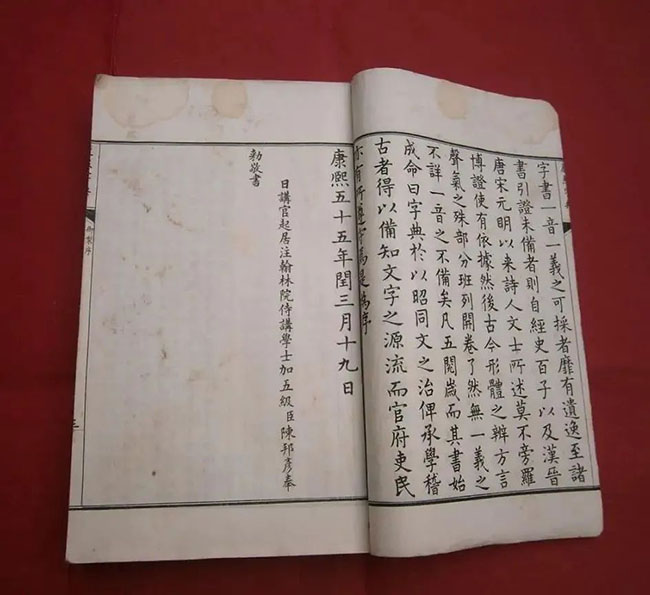 字書一音一義之可採者靡有遺逸至諸
書引證未備者則自經史百子以及漢晉
唐宋元明以来詩人文士所述莫不旁羅
博證使有依據然後古今形體之辨方言
聲氣之殊部分班列開卷了然無一義之
不詳一音之不備矣凡五閱歲而其書始
成命曰字典於以昭同文之治俾承學稽
古者得以備知文字之源流而官府吏民
亦有所遵守焉是為序
康熙五十五年閏三月十九日
日講官起居注翰林院侍講學士加五級臣陳邦彥奉
勅敬書